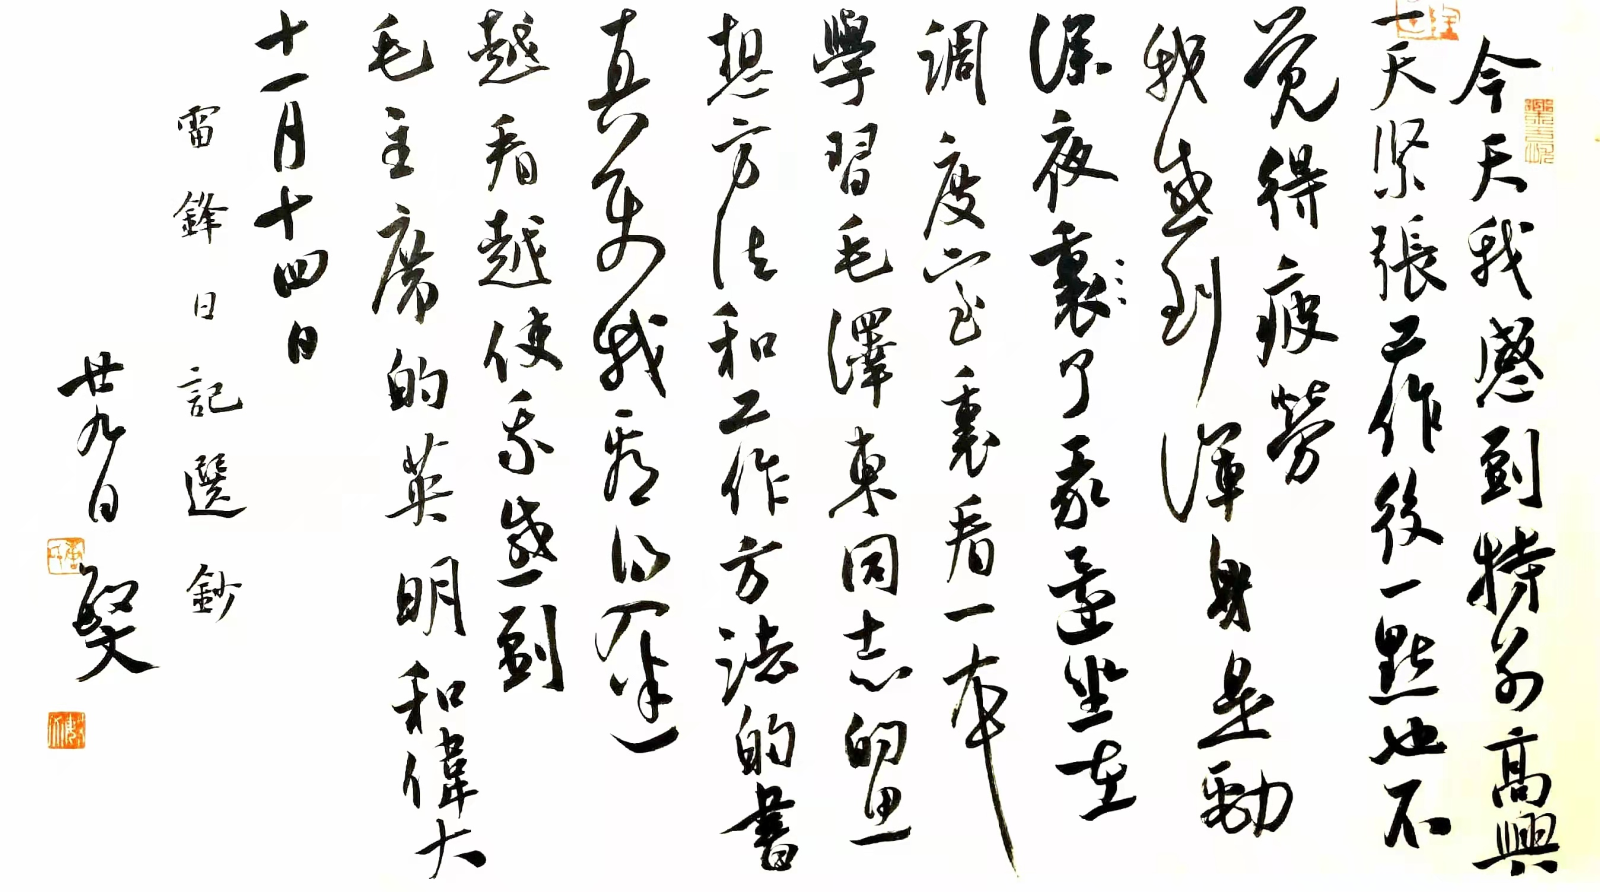 今天我感到特别高興
一天紧張工作後一點也不
觉得疲勞
我感到渾身是勁
深夜裏了我還坐在
调度室裏看一本
學習毛澤東同志的思
想方法和工作方法的書
真使我看得入迷
越看越使我感到
毛主席的英明和偉大
十一月十四日
雷鋒日記選鈔
廿九日